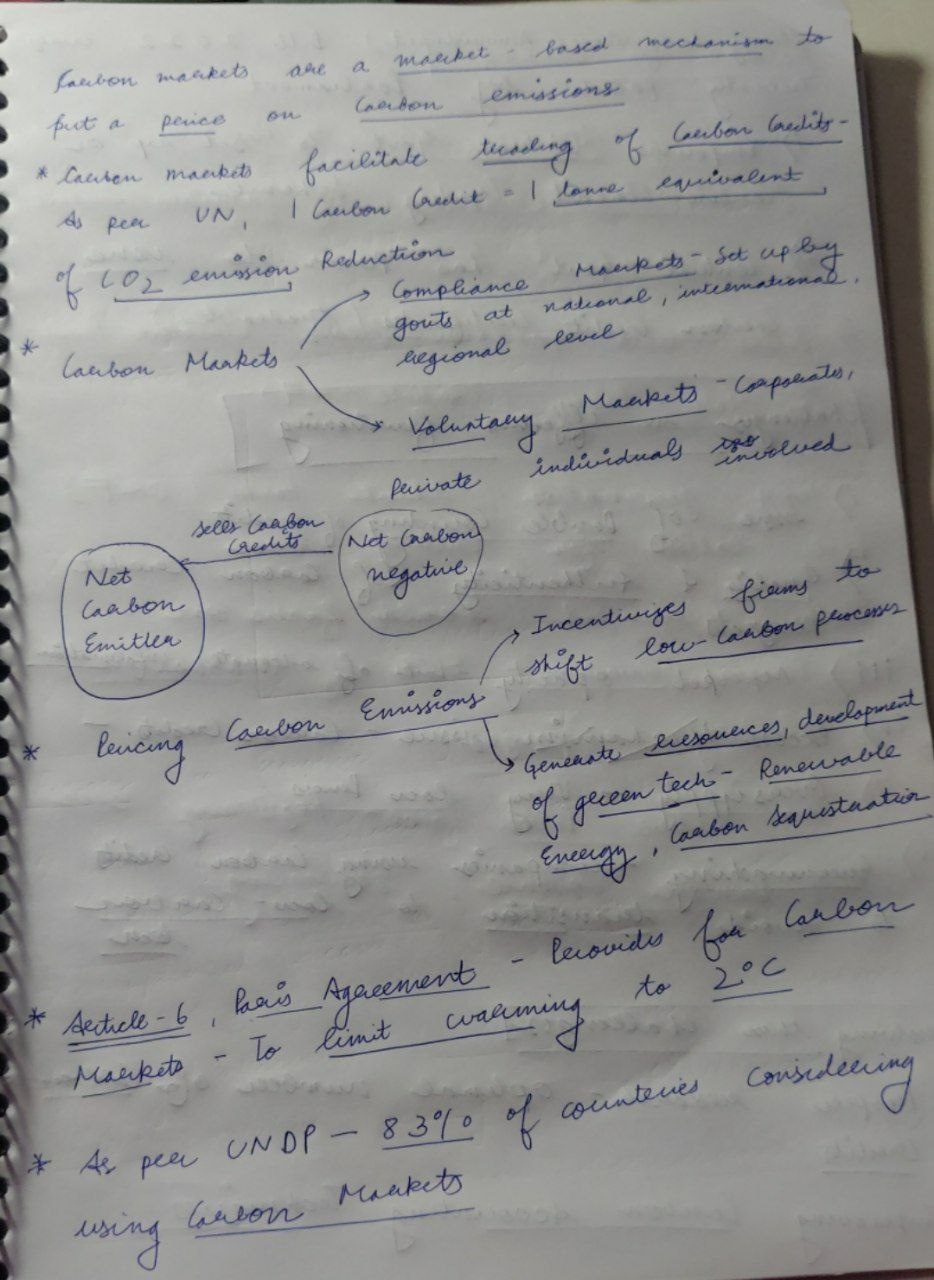 Carbon markets are a market-based mechanism to
put a price on Carbon emissions
* Carbon markets facilitate trading of Carbon Credits-
As per UN, 1 Carbon Credit = 1 tonne equivalent
of CO2 emission Reduction
* Carbon Markets
Compliance Markets - Set up by
govts at national, international,
regional level
Voluntary Markets - Corporates,
private individuals involved
sells Carbon
Credits
Net
Carbon
Emitter
Net Carbon
negative
* Pricing Carbon Emissions
Incentivizes firms to
shift low-Carbon processes
Generate resources, development
of green tech - Renewable
Energy, Carbon Sequestration
* Article-6, Paris Agreement - Provides for Carbon
Markets - To limit warming to 2°C
* As per UNDP - 83% of countries considering
using Carbon Markets